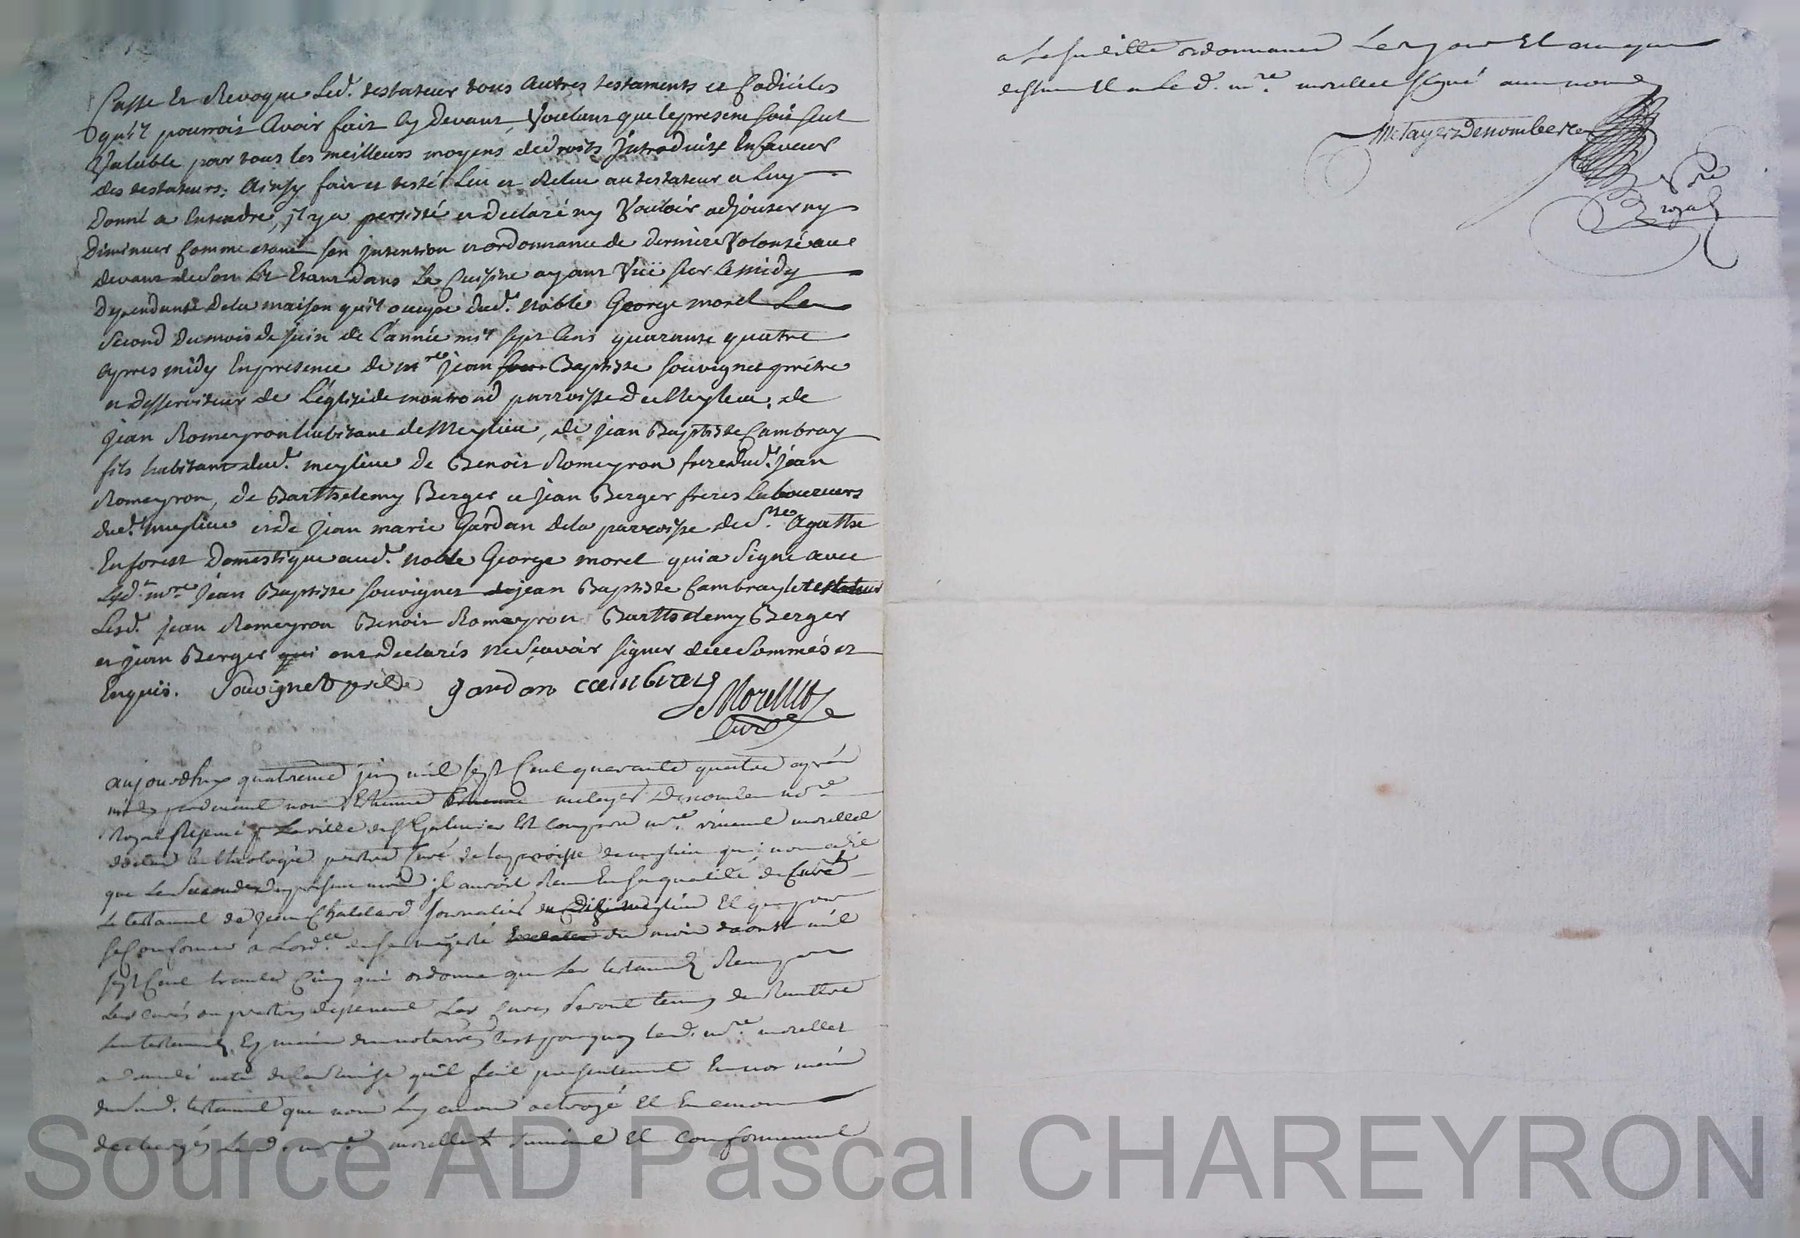 Casse Et Revoque Led. testateur tous autres testaments et Codiciles
qu'il pourroit Avoir fait Cy Devant, Voulant que le present soit seul
Valable pour tous les meilleurs moyens de droits Introduits En faveur
des testateurs. Ainsy fait et testé Leu et Releu au testateur a Luy
Donné a Entendre, il y a persisté et declaré ny Vouloir adjouter ny
Diminuer Comme etant son intention et ordonnance de derniere Volonté au
devant de son lit Etant Dans La Cuisine ayant Vuë sur le midy
Dependante de la maison qu'il occupe dud. noble George morel Le
Second du mois de juin de l'année mil sept Cens quarante quatre
apres midy En presence de mre jean Baptiste Souvignet prêtre
et desserviteur de L'église de montrond parroisse de Meylieu, de
jean Romeyron habitant de Meylieu, de jean Baptiste Cambray
fils habitant dud. meylieu de Benoit Romeyron frere dud. jean
Romeyron, de Barthelemy Berger et jean Berger freres Laboureurs
dud. meylieu et de jean marie Gardan de la parroisse de Ste Agathe
En forest Domestique aud. noble George morel qui a signé avec
Led. mre jean Baptiste Souvignet jean Baptiste Cambray le testateur
Lesd. jean Romeyron Benoit Romeyron Barthelemy Berger
et jean Berger qui ont declarés ne sçavoir signer de ce sommés et
Enquis. Souvignet gardan cambray
Morellet
Curé
aujourdhuy quatrieme juin mil sept Cent quarante quatre aprés
midy pardevant nous Etienne metayer Denombe nore
Royal Reservé a La ville de St Galmier Est comparu mre vincent morellet
docteur En theologie pretre Curé de la paroisse de meylieu qui nous a dit
que Le Second du present mois il auroit Receu En sa qualité de Curé
Le testament de jean Challard journalier de meylieu Et que pour
se Conformer a Lordce de sa majesté du mois daoust mil
sept Cent trente Cinq qui ordonne que Les testaments Receus par
Les curés ou pretres desservant Les Cures seront tenus de Remettre
Les testaments Es mains des notaires C'est pourquoy led. mre morellet
a demandé acte de la Remise qu'il fait presentement En nos mains
dud. testament que nous luy avons octroyé Et En avons
dechargés Led. mre morellet Suivant Et Conformement
a La susditte ordonnance Les jour Et an que
dessus Et a Led. mre morellet signé avec nous
Metayer Denombe
nore
royal
Source AD Pascal CHAREYRON